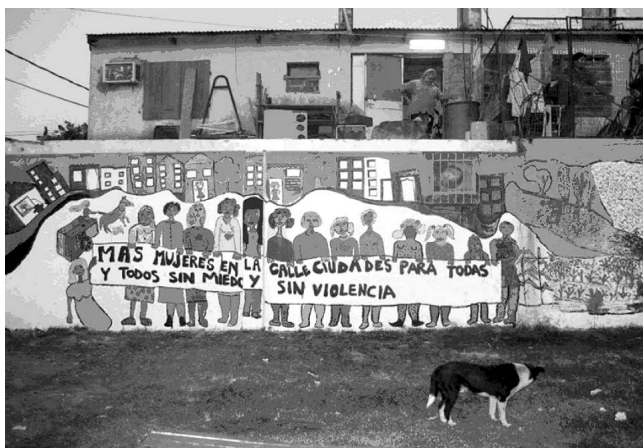 MAS MUJERES EN LA CALLE CIUDADES PARA TODAS
Y TODOS SIN MIEDO Y SIN VIOLENCIA